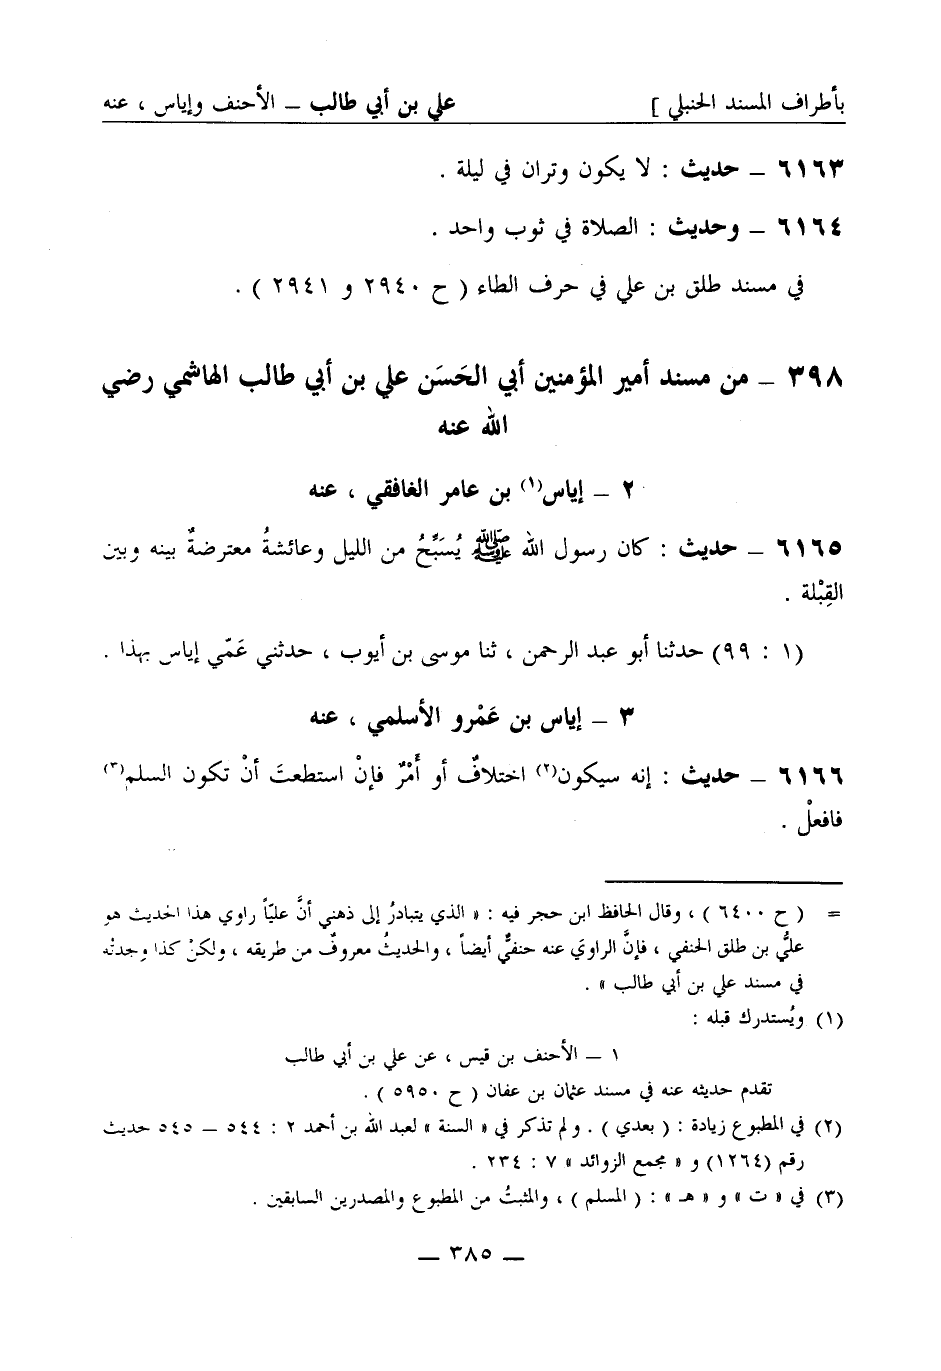 بأطراف المسند الحنبلي ] علي بن أبي طالب – الأحنف وإياس ، عنه
٦١٦٣ – حديث : لا يكون وتران في ليلة .
٦١٦٤ – وحديث : الصلاة في ثوب واحد .
في مسند طلق بن علي في حرف الطاء ( ح ٢٩٤٠ و ٢٩٤١ ) .
٣٩٨ – من مسند أمير المؤمنين أبي الحَسَن علي بن أبي طالب الهاشمي رضي
الله عنه
٢ – إياس(١) بن عامر الغافقي ، عنه
٦١٦٥ – حديث : كان رسول الله ﷺ يُسَبِّحُ من الليل وعائشةُ معترضةٌ بينه وبين
القِبْلة .
(١ : ٩٩) حدثنا أبو عبد الرحمن ، ثنا موسى بن أيوب ، حدثني عَمّي إياس بهذا .
٣ – إياس بن عَمْرو الأسلمي ، عنه
٦١٦٦ – حديث : إنه سيكون(٢) اختلافٌ أو أَمْرٌ فإنْ استطعتَ أنْ تكون السلم(٣)
فافعلْ .
= ( ح ٦٤٠٠ ) ، وقال الحافظ ابن حجر فيه : « الذي يتبادرُ إلى ذهني أنَّ عليّاً راوي هذا الحديث هو
عليُّ بن طلق الحنفي ، فإنَّ الراويَ عنه حنفيٌّ أيضاً ، والحديثُ معروفٌ من طريقه ، ولكنْ كذا وجدتُه
في مسند علي بن أبي طالب » .
(١) ويُستدرك قبله :
١ – الأحنف بن قيس ، عن علي بن أبي طالب
تقدم حديثه عنه في مسند عثمان بن عفان ( ح ٥٩٥٠ ) .
(٢) في المطبوع زيادة : ( بعدي ) . ولم تذكر في « السنة » لعبد الله بن أحمد ٢ : ٥٤٤ – ٥٤٥ حديث
رقم (١٢٦٤) و « مجمع الزوائد » ٧ : ٢٣٤ .
(٣) في « ت » و « هـ » : ( المسلم ) ، والمثبتُ من المطبوع والمصدرين السابقين .
– ٣٨٥ –